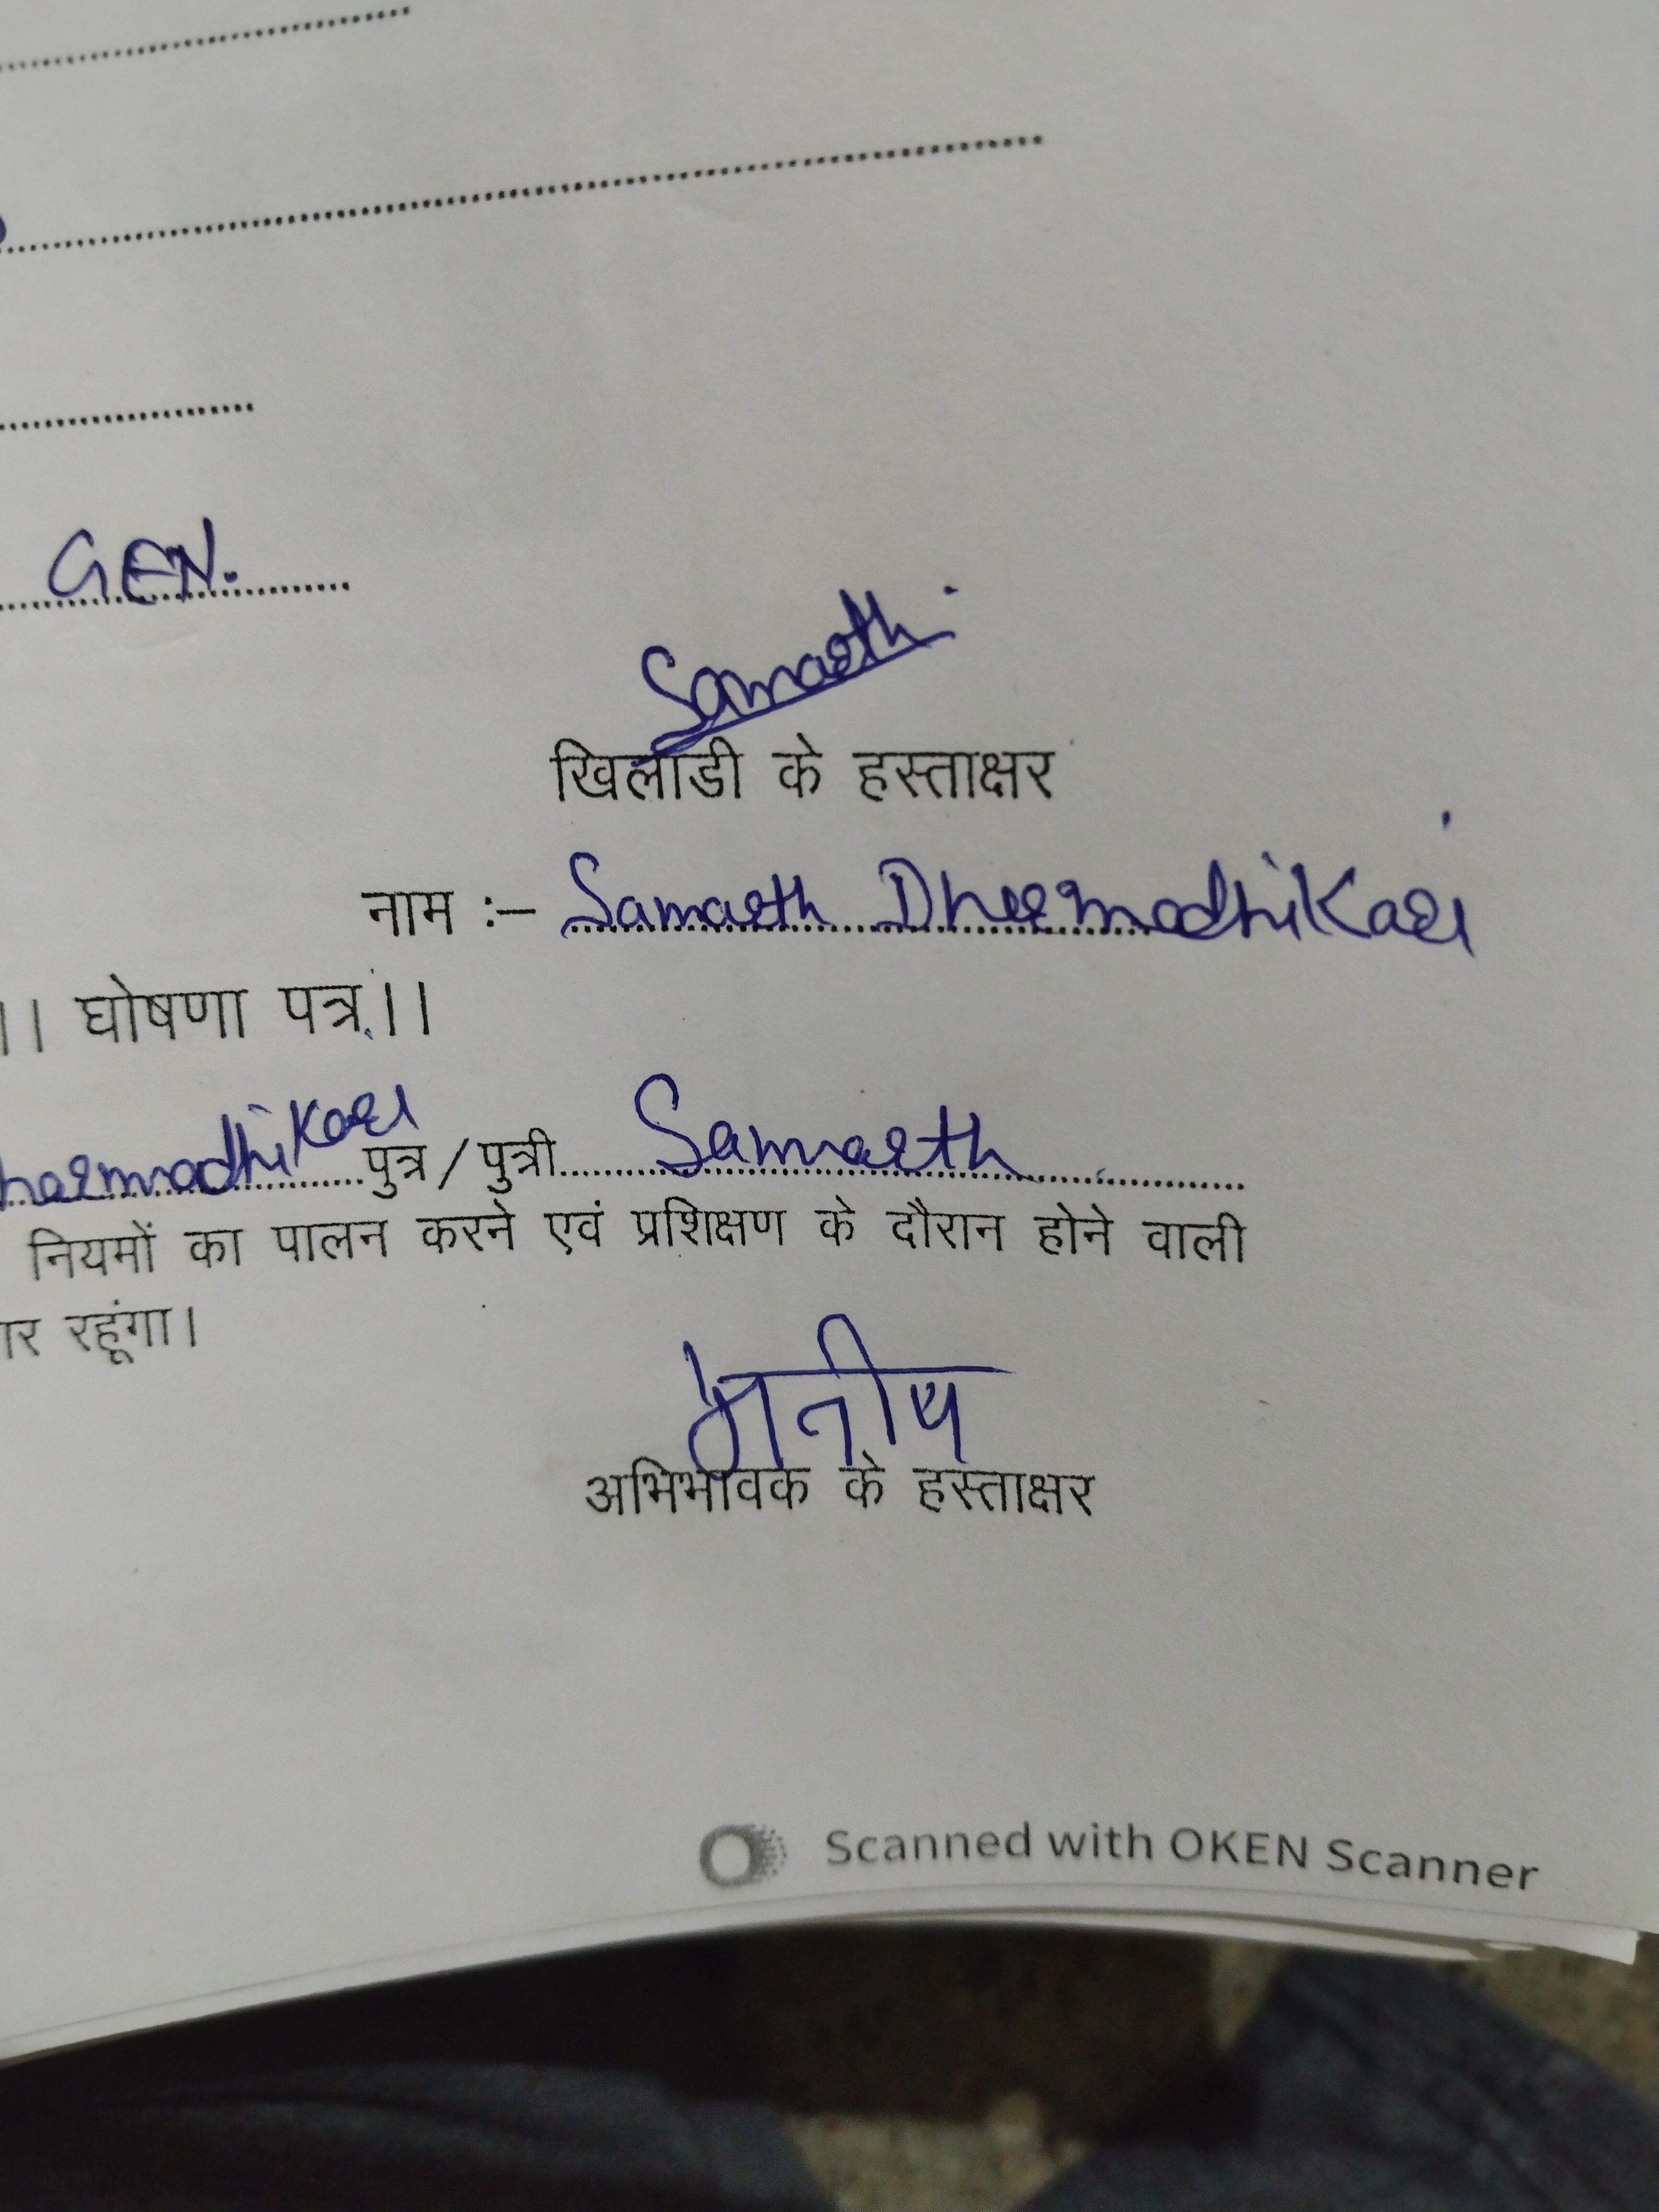 GEN.
Samarth
खिलाडी के हस्ताक्षर
नाम :– Samarth Dharmadhikari
।। घोषणा पत्र ।।
harmadhikari पुत्र / पुत्री Samarth
नियमों का पालन करने एवं प्रशिक्षण के दौरान होने वाली
ार रहूंगा।
मनीष
अभिभावक के हस्ताक्षर
Scanned with OKEN Scanner